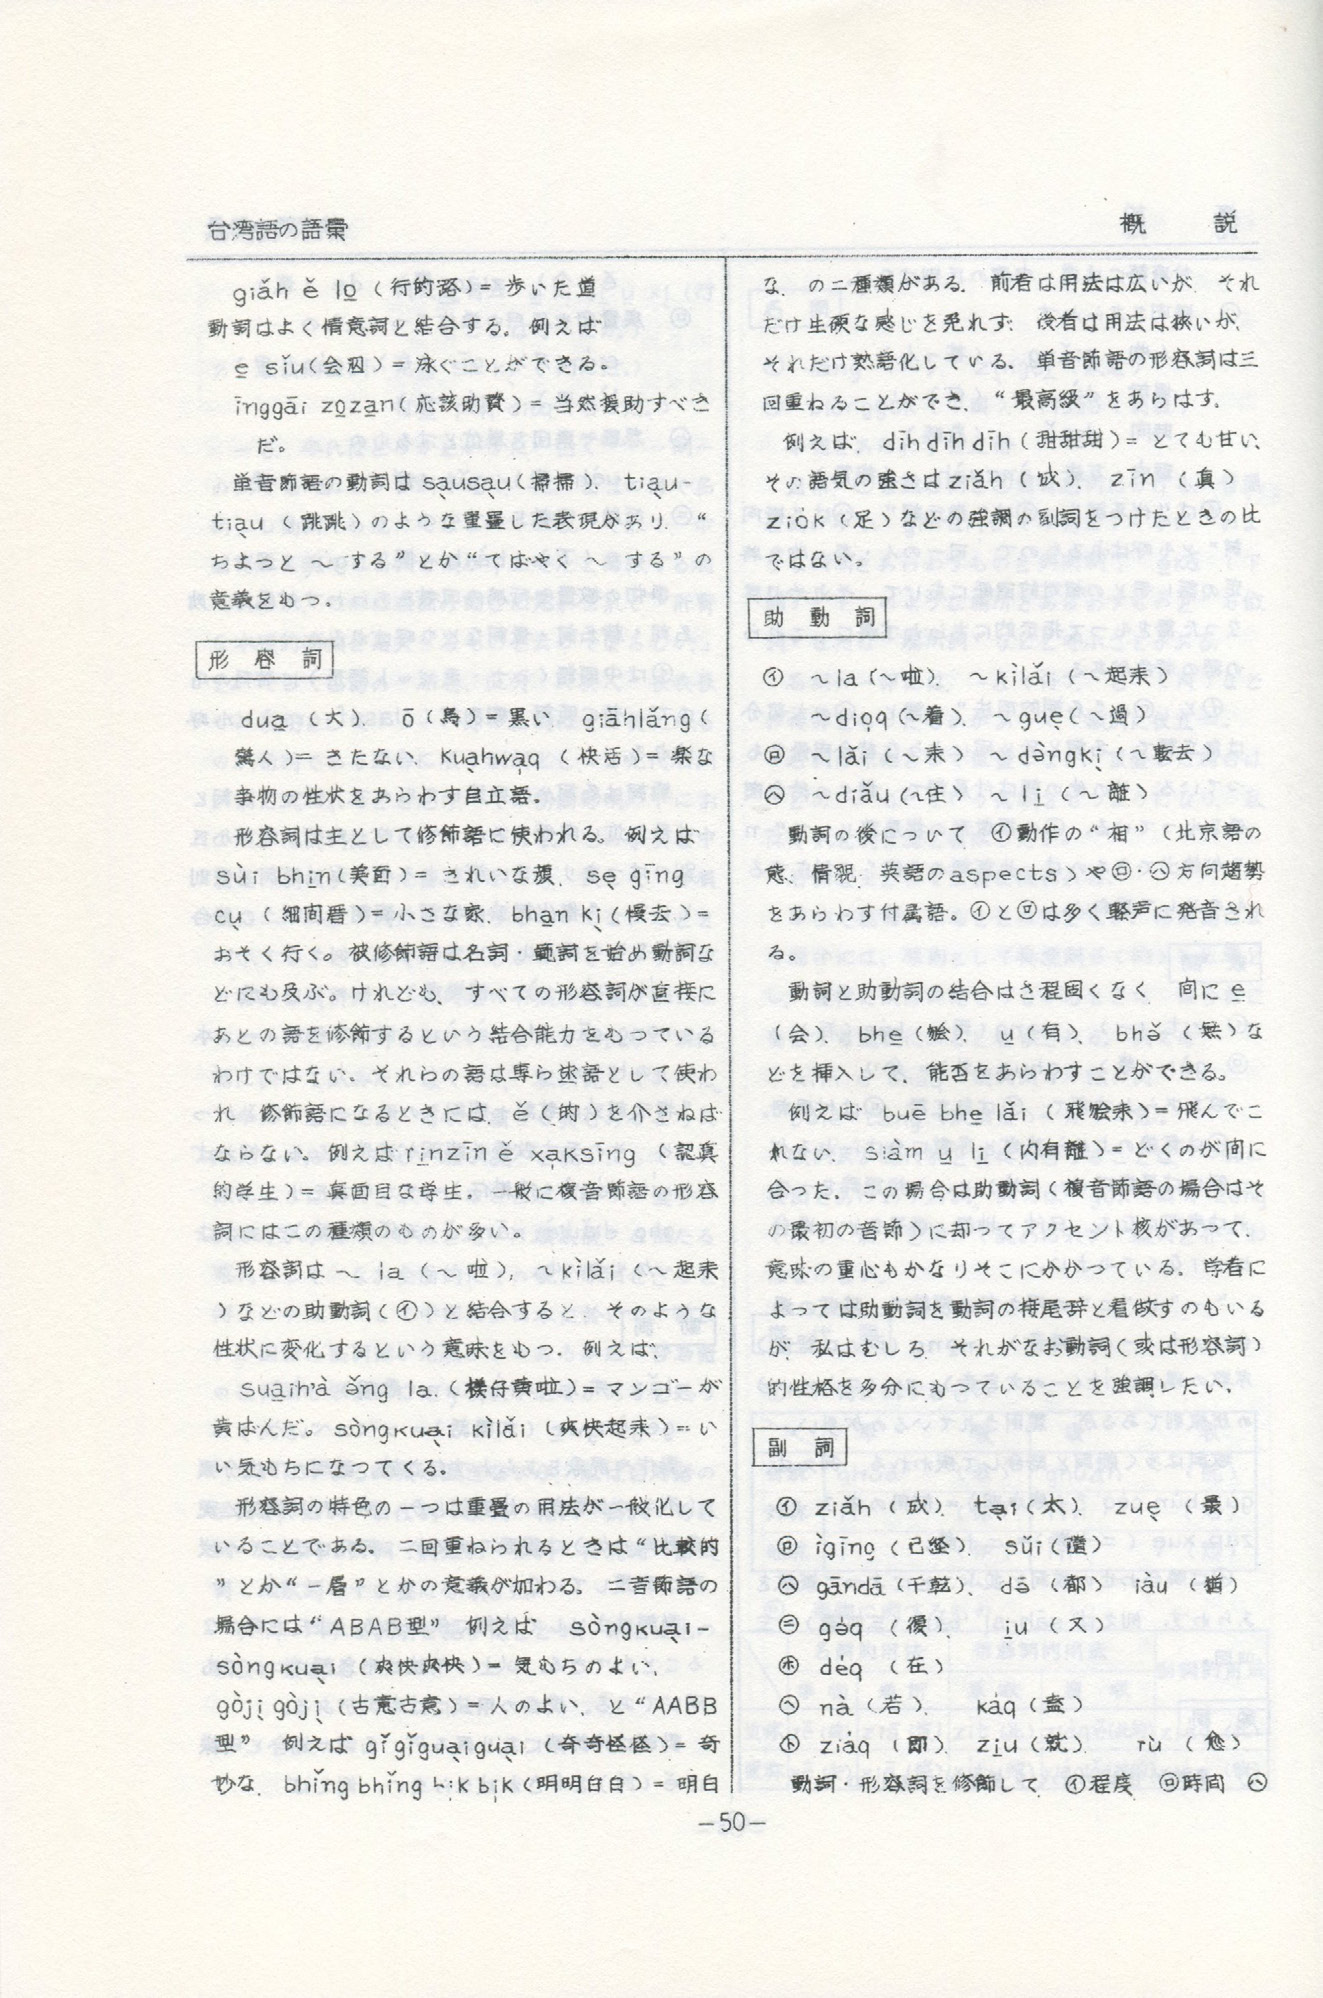 台湾語の語彙
概 説
giǎh ě lo̲ (行的路)=歩いた道
動詞はよく情意詞と結合する。例えば
e̲ sǐu(会泅)=泳ぐことができる。
īnggāi zo̲za̲n(応該助賛)=当然援助すべき
だ。
単音節語の動詞は sạusạu(掃掃)、tiạu-
tiạu (跳跳)のような重畳した表現があり、“
ちょっと～する”とか“てばやく～する”の
意義をもつ。
形容詞
dua̲ (大)、ō(烏)=黒い、giāhlǎng(
驚人)=きたない、kuạhwạq (快活)=楽な
事物の性状をあらわす自立語。
形容詞は主として修飾語に使われる。例えば
sùi bhi̲n(美面)=きれいな顔、sẹ gīng
cụ (細間厝)=小さな家、bha̲n kị(慢去)=
おそく行く。被修飾語は名詞・範詞を始め動詞な
どにも及ぶ。けれども、すべての形容詞が直接に
あとの語を修飾するという結合能力をもっている
わけではない。それらの語は専ら述語として使わ
れ、修飾語になるときには、ě(的)を介さねば
ならない。例えば ri̲nzīn ě xạksīng (認真
的学生)=真面目な学生。一般に複音節語の形容
詞にはこの種類のものが多い。
形容詞は～ la (～啦)、～kìlǎi (～起来
)などの助動詞(㋑)と結合すると、そのような
性状に変化するという意味をもつ。例えば、
sua̲ih'à ěng la.(檨仔黄啦)=マンゴーが
黄ばんだ。sòngkuại kìlǎi (爽快起来)=い
い気もちになってくる。
形容詞の特色の一つは重畳の用法が一般化して
いることである。二回重ねられるときは“比較的
”とか“一層”とかの意義が加わる。二音節語の
場合には“ABAB型” 例えば sòngkuại-
sòngkuại (爽快爽快)=気もちのよい、
gòjị gòjị (古意古意)=人のよい、と“AABB
型” 例えば gǐgǐguạiguại (奇奇怪怪)=奇
妙な、bhǐngbhǐng bịkbịk(明明白白)=明白
な、の二種類がある。前者は用法は広いが、それ
だけ生硬な感じを免れず、後者は用法は狭いが、
それだけ熟語化している。単音節語の形容詞は三
回重ねることができ、“最高級”をあらはす。
例えば、dīhdīhdīh (甜甜甜)=とても甘い、
その語気の強さは ziǎh (成)、zīn (真)
ziok (足)などの強調の副詞をつけたときの比
ではない。
助動詞
㋑ ～la(～啦)、 ～kìlǎi (～起来)
～diọq(～着)、～guẹ(～過)
㋺ ～lǎi (～来) ～dèngkị (～転去)
㋩ ～diǎu(～住) ～li̲ (～離)
動詞の後について、㋑動作の“相”(北京語の
態、情貌、英語のaspects)や㋺・㋩方向趨勢
をあらわす付属語。㋑と㋺は多く軽声に発音され
る。
動詞と助動詞の結合はさ程固くなく、間に e̲
(会)、bhe̲ (𣍐)、u̲ (有)、bhə̌ (無)な
どを挿入して、能否をあらわすことができる。
例えば buē bhe̲ lǎi (飛𣍐来)=飛んでこ
れない、siám u̲ li̲ (閃有離)=どくのが間に
合った。この場合は助動詞(複音節語の場合はそ
の最初の音節)に却ってアクセント核があって、
意味の重心もかなりそこにかかっている。学者に
よっては助動詞を動詞の接尾辞と看做すのもいる
が、私はむしろ、それがなお動詞(或は形容詞)
的性格を多分にもっていることを強調したい。
副詞
㋑ ziǎh (成)、 tạı(太)、 zuẹ (最)
㋺ ìgīng (已経)、 sǔi(隨)
㋩ gāndā(干乾)、də̄ (都) iàu (猶)
㋥ gəq (復)、 i̲u (又)
㋭ déq (在)
㋬ nà (若)、 káq (盍)
㋣ ziáq (即)、 zi̲u (就)、 rù (愈)
動詞・形容詞を修飾して、㋑程度 ㋺時間 ㋩
-50-